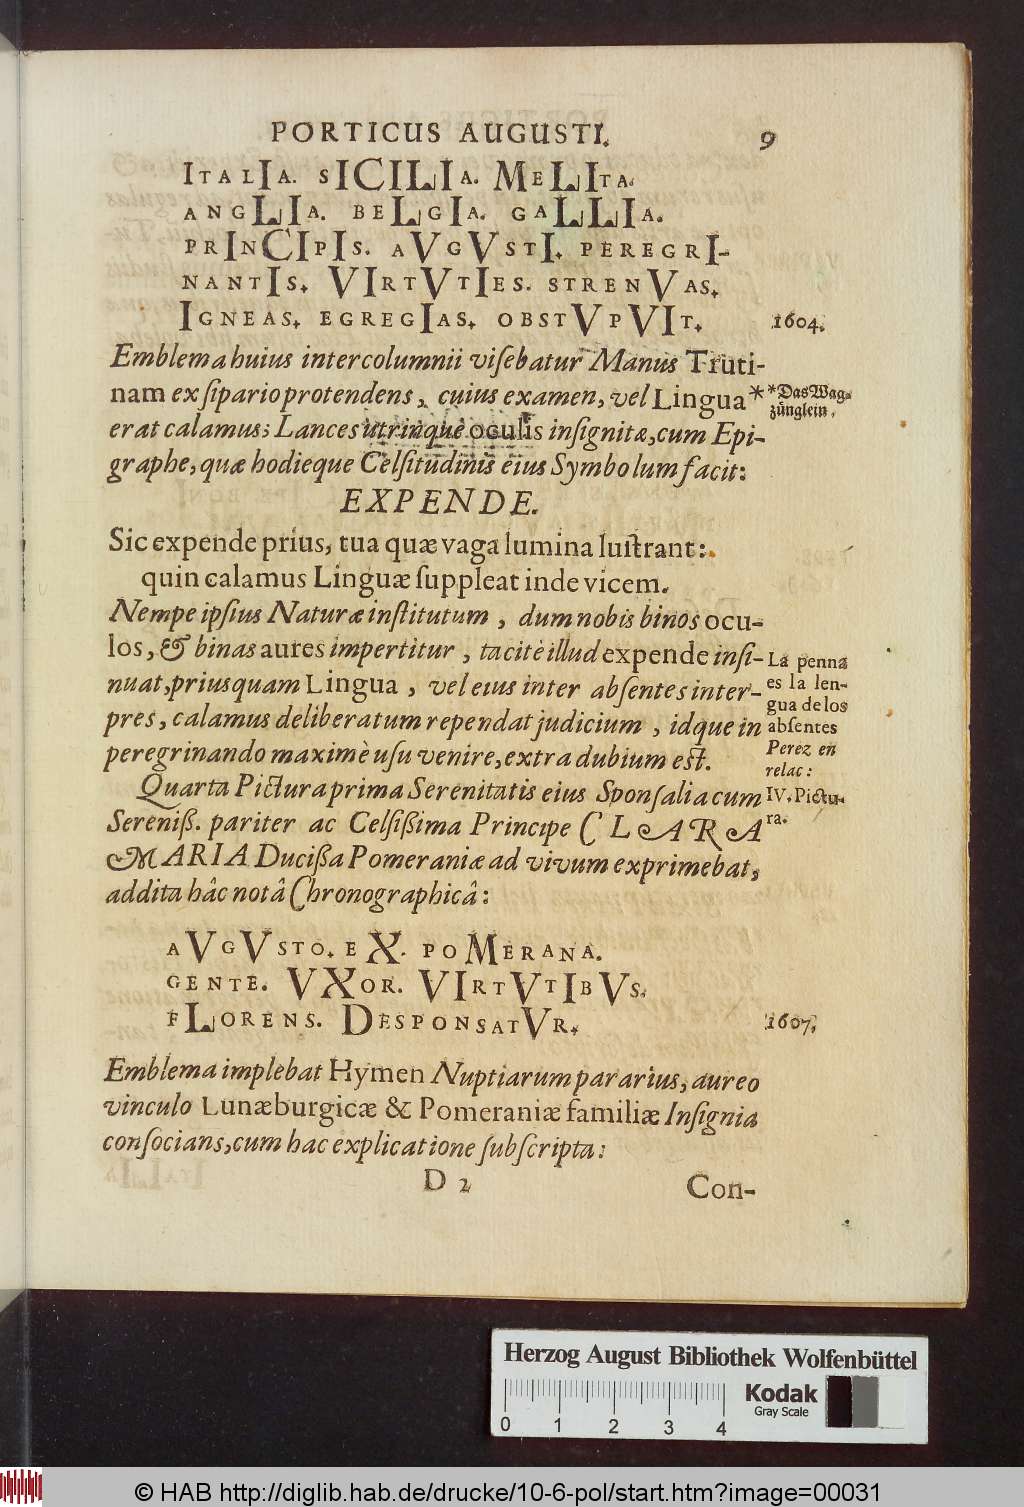 PORTICUS AUGUSTI. 9
ITALIA. SICILIA. MELITA.
ANGLIA. BELGIA. GALLIA.
PRINCIPIS. AVGVSTI. PEREGRI-
NANTIS. VIRTVTIES. STRENVAS.
IGNEAS. EGREGIAS. OBSTVPVIT. 1604.
Emblema huius intercolumnii viſebatur Manus Truti-
nam ex ſipario protendens, cuius examen, vel Lingua *
*Das Wag-
zünglein.
erat calamus; Lances utrinque oculis inſignitæ, cum Epi-
graphe, quæ hodieque Celſitudinis eius Symbolum facit:
EXPENDE.
Sic expende prius, tua quæ vaga lumina luſtrant:
quin calamus Linguæ ſuppleat inde vicem.
Nempe ipſius Naturæ inſtitutum, dum nobis binos ocu-
los, & binas aures impertitur, tacitè illud expende inſi-
nuat, priusquam Lingua, vel eius inter abſentes inter-
pres, calamus deliberatum rependat judicium, idque in
peregrinando maximè uſu venire, extra dubium eſt.
La penna
es la len-
gua de los
abſentes
Perez en
relac:
Quarta Pictura prima Serenitatis eius Sponſalia cum
IV. Pictu-
ra.
Sereniß. pariter ac Celſißima Principe CLARA
MARIA Ducißa Pomeraniæ ad vivum exprimebat,
addita hâc notâ Chronographicâ:
AVGVSTO. EX. POMERANA.
GENTE. VXOR. VIRTVTIBVS.
FLORENS. DESPONSATVR. 1607.
Emblema implebat Hymen Nuptiarum pararius, aureo
vinculo Lunæburgicæ & Pomeraniæ familiæ Inſignia
conſocians, cum hac explicatione ſubſcripta:
D 2 Con-
Herzog August Bibliothek Wolfenbüttel
0 1 2 3 4
Kodak
Gray Scale
© HAB http://diglib.hab.de/drucke/10-6-pol/start.htm?image=00031